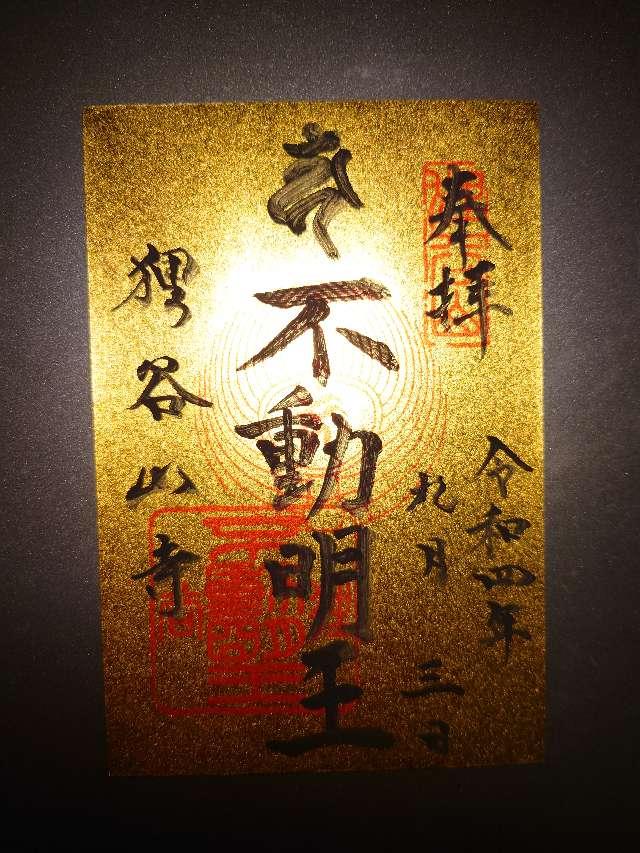 奉拝
令和四年
九月三日
不動明王
狸谷山寺